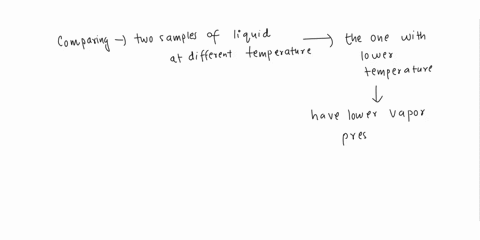 Comparing → two samples of liquid
at different temperature → the one with
lower
temperature
↓
have lower vapor
pres